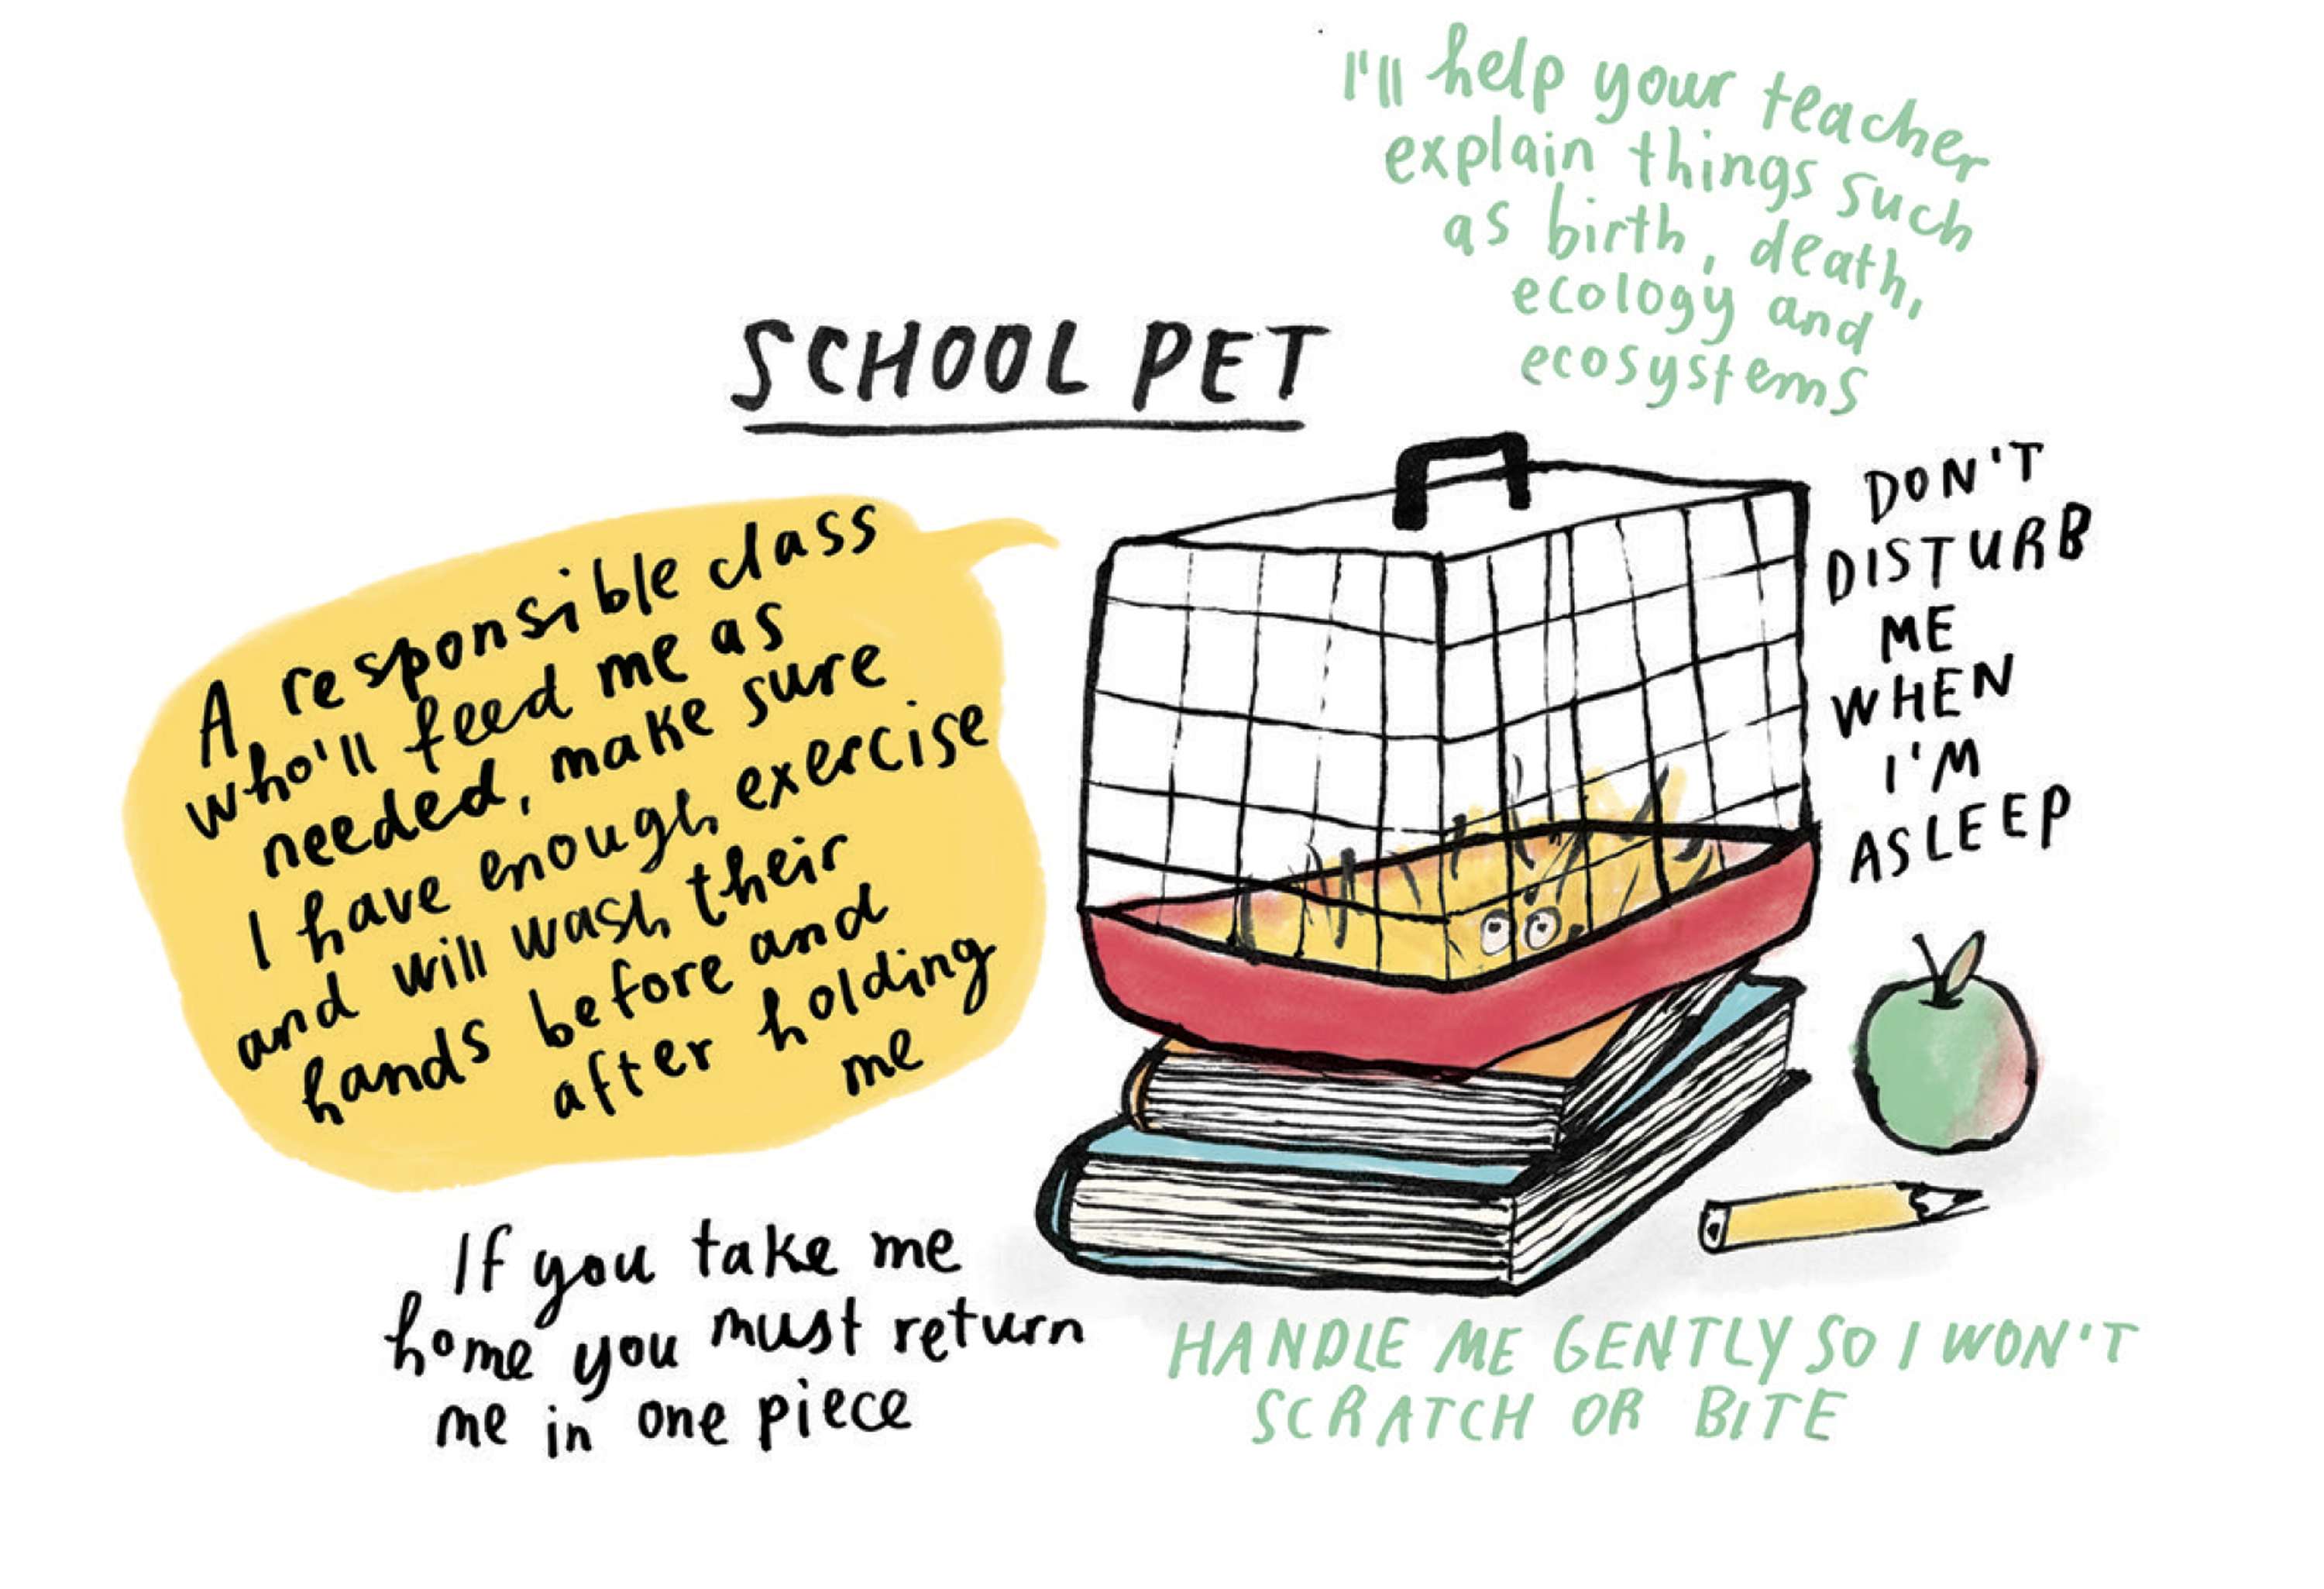 I'll help your teacher
explain things such
as birth, death,
ecology and
ecosystems
SCHOOL PET
A responsible class
who'll feed me as
needed, make sure
I have enough exercise
and will wash their
hands before and
after holding
me
DON'T
DISTURB
ME
WHEN
I'M
ASLEEP
If you take me
home you must return
me in one piece
HANDLE ME GENTLY SO I WON'T
SCRATCH OR BITE